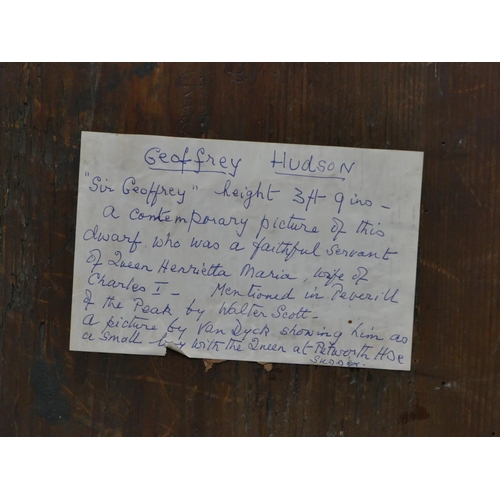 Geoffrey Hudson
"Sir Geoffrey" height 3ft 9ins -
a contemporary picture of this
dwarf, who was a faithful servant
of Queen Henrietta Maria, wife of
Charles I - Mentioned in Peverill
of the Peak by Walter Scott -
A picture by Van Dyck showing him as
a small boy with the Queen at Petworth Hse